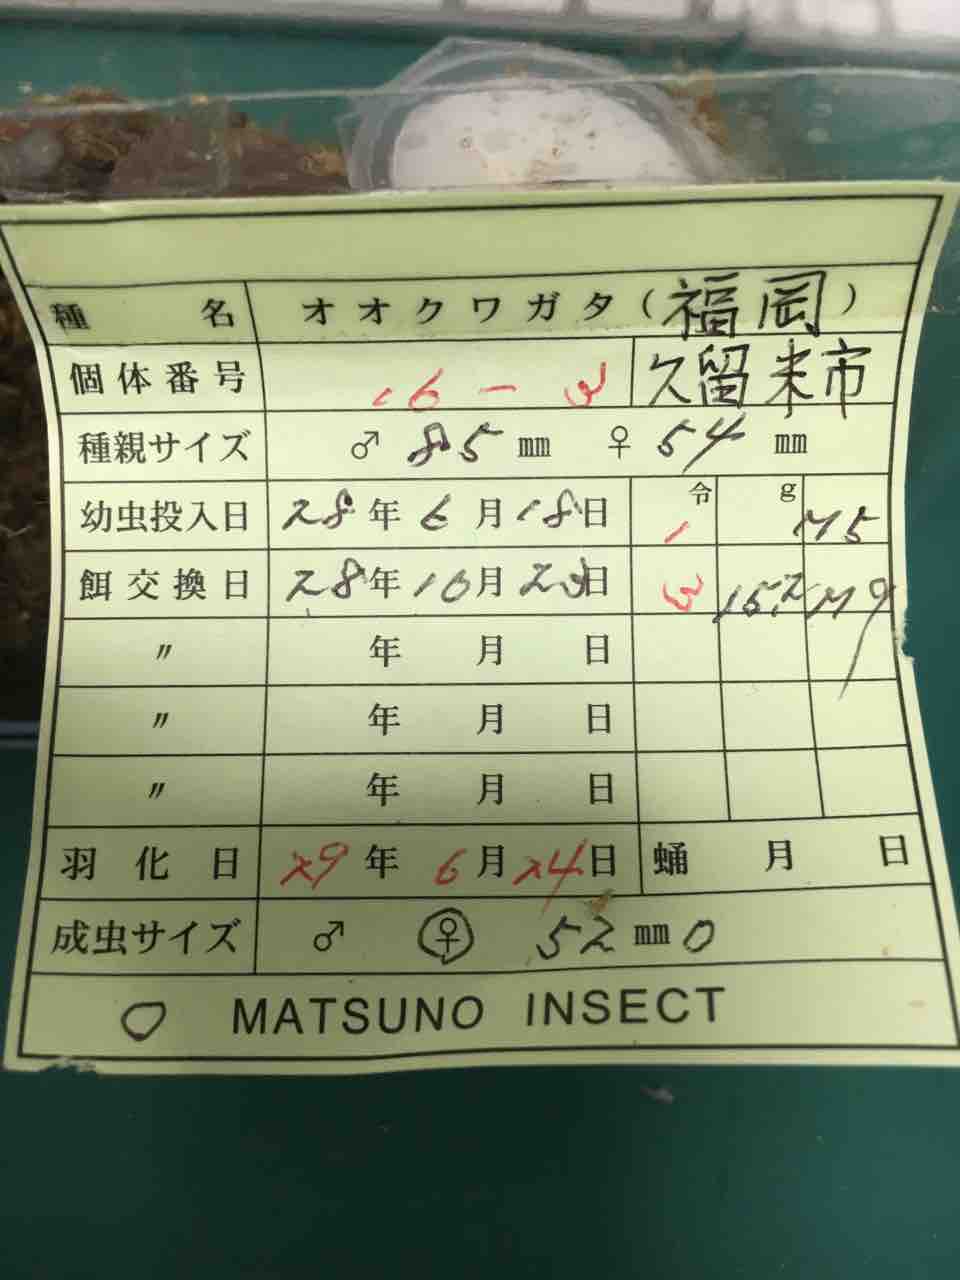 種名 オオクワガタ(福岡)
個体番号 16-3 久留米市
種親サイズ ♂ 85 mm ♀ 54 mm
幼虫投入日 28年 6月 18日 令 1 g M5
餌交換日 28年 10月 23日 3 15.2 M9
〃 年 月 日
〃 年 月 日
〃 年 月 日
羽化日 29年 6月 24日 蛹 月 日
成虫サイズ ♂ ♀ 52 mm 0
O MATSUNO INSECT